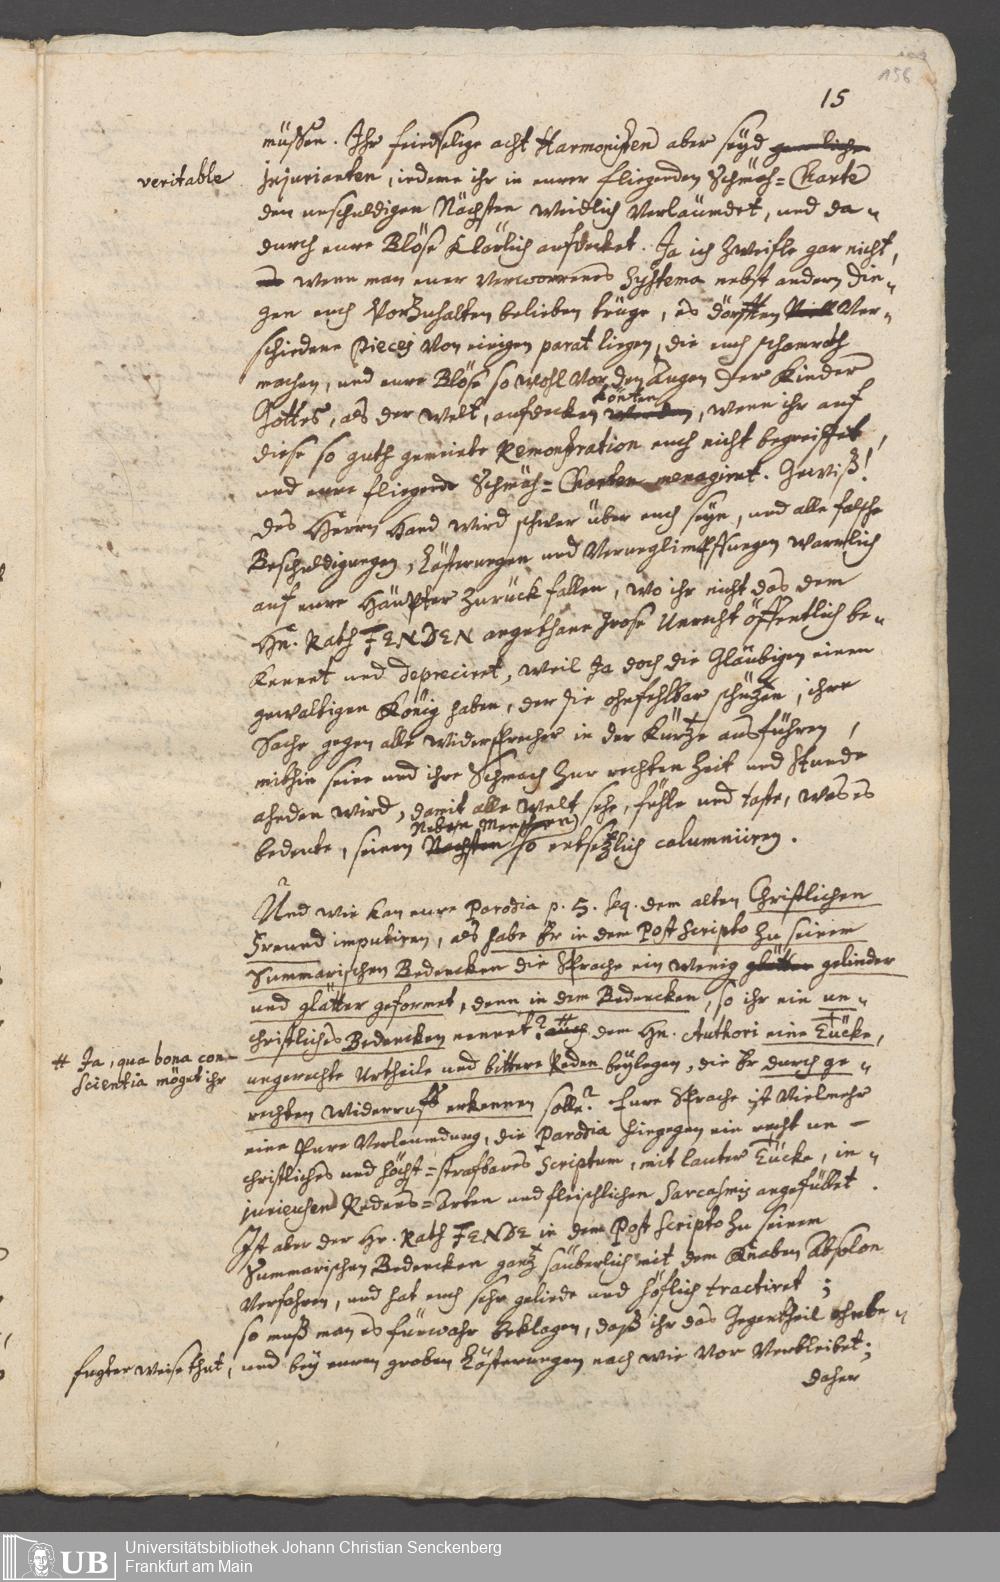 156
15
müßen. Ihr feindselige acht Harmonisten aber seyd
veritable Injurianten, indeme ihr in eurer fliegenden Schmäh=Charte
den unschuldigen Nächsten weidlich verläumdet, und da„
durch eure Blöse klärlich aufdecket. Ja ich zweifle gar nicht,
wenn man euer verworrenes Systema nebst andern Din„
gen euch vorzuhalten belieben trüge, es dörfften Ver„
schiedene Pieces von einigen parat liegen, die euch schamroth
machen, und eure Blöse so wohl vor den Augen der Kinder
Gottes, als der Welt, aufdecken könten, wenn ihr auf
diese so guth gemeinte Remonstration euch nicht begreiffet,
und eure fliegende Schmäh=Charten menagiret. Gewiß!
des Herrn Hand wird schwer über euch seyn, und alle falsche
Beschuldigungen, Lästerungen und Verunglimpffungen warrlich
auf eure Häupter zurück fallen, wo ihr nicht das dem
Hn. Rath FENDEN angethane grose Unrecht öffentlich be„
kennet und depreciret, weil Ja doch die Gläubigen einen
gewaltigen König haben, der sie ohnfehlbar schützen, ihre
Sache gegen alle Widersprecher in der Kürtze ausführen,
mithin seine und ihre Schmach zur rechten Zeit und Stunde
ahnden wird, damit alle Welt sehe, fühle und taste, was es
bedeute, seinen Neben Menschen so entsetzlich calumniiren.
Und wie kan eure Parodia p. 5. seq. dem alten Christlichen
Freund imputiren, als habe Er in dem Post Scripto zu seinem
Summarischen Bedencken die Sprache ein wenig gelinder
und glätter geformet, denn in dem Bedencken, so ihr ein un„
christliches Bedencken nennet? # dem Hn. Authori eine Tücke,
# Ja, qua bona con-
scientia möget ihr
ungerechte Urtheile und bittere Reden beylegen, die Er durch ge„
rechten Widerruff erkennen solle? Eure Sprache ist vielmehr
eine Pure Verleumdung, die Parodia hingegen ein recht un-
christliches und höchst=strafbares Scriptum, mit lauter Tücke, in„
jurieusen Redens=Arten und fleischlichen Sarcasmis angefüllet.
Ist aber der Hr. Rath FENDE in dem Post Scripto zu seinem
Summarischen Bedencken gantz säuberlich mit dem Knaben Absolon
verfahren, und hat euch sehr gelinde und höflich tractiret;
so muß man es fürwahr beklagen, daß ihr das Gegentheil ohnbe„
fugter Weise thut, und bey euren groben Lästerungen nach wie vor verbleibet;
daher
UB
Universitätsbibliothek Johann Christian Senckenberg
Frankfurt am Main